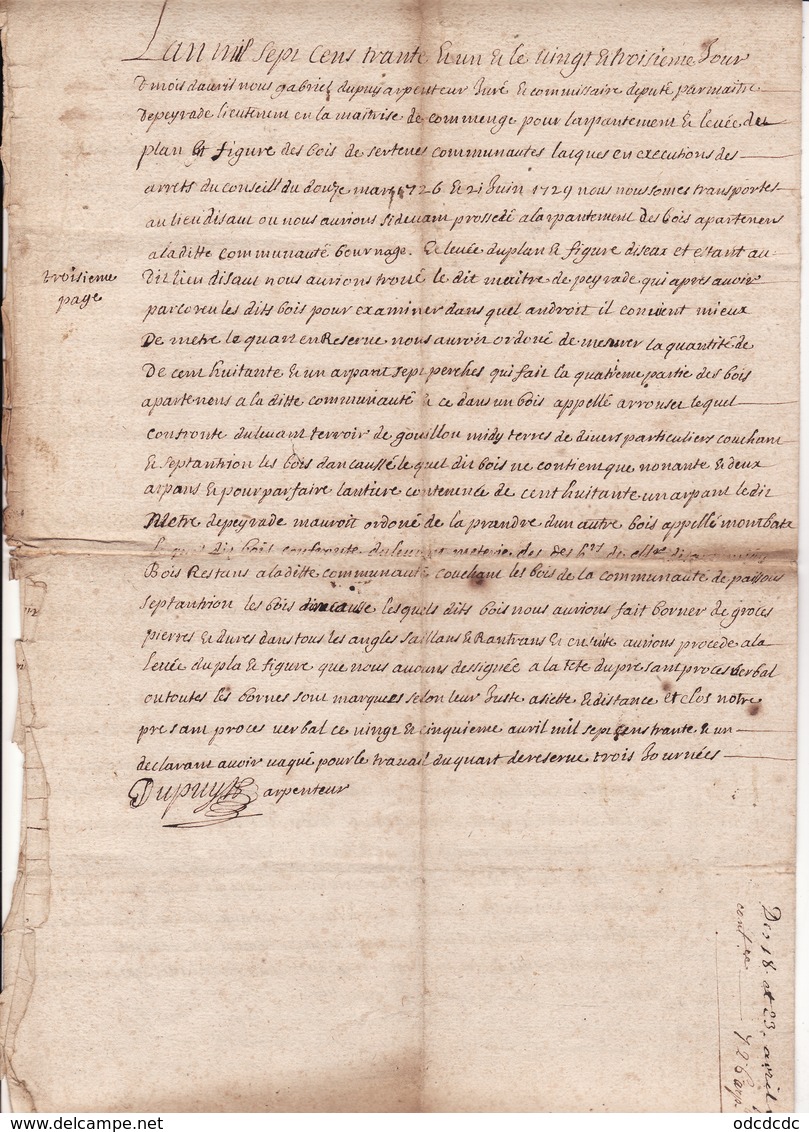 Lan mil sept cens trante & un & le vingt & troisieme Jour
& mois davril nous gabriel dupuy arpenteur Juré & commissaire deputé par maitre
depeyrade lieutenent en la maitrise de commenge pour larpantement & levée du
plan et figure des bois de sertenes communautes laiques en executions des
arrets du conseill du douze mars 1726 & 21 Juin 1729 nous nous somes transportes
au lieu disaut ou nous aurions si devant prossedé a larpantement des bois apartenens
a laditte communauté bournage & levée du plan & figure diseax et estant au
dit lieu disaut nous aurions trouvé le dit maitre de peyrade qui apres avoir
parcoreu les dits bois pour examiner dans quel androit il convient mieux
De metre le quart en Reserve nous auroit ordoné de mesurer la quantité de
De cent huitante & un arpant sept perches qui fait la quatrieme partie des bois
apartenens a la ditte communauté & ce dans un bois appellé arrouset lequel
confronte du levant terroir de gouillou midy terres de divers particuliers couchant
& septantrion les bois dancausse le quel dit bois ne contient que nonante & deux
arpans & pour parfaire lantiere contenence de cent huitante un arpant le dit
Metre depeyrade mauroit ordoné de la prandre dun autre bois appellé mombate
le quel dit bois confronte du levant meterie des
Bois Restans a laditte communauté couchant les bois de la communauté de paissous
septantrion les bois dancausse lesquels dits bois nous aurions fait borner de groces
pierres & dures dans tous les angles saillans & Rantrans & ensuite aurions procede a la
levée du pla & figure que nous avons dessignée a la tête du presant proces verbal
ou toutes les bornes sont marquees selon leur Juste asiette & distance et clos notre
presant proces verbal ce vingt & cinquieme avril mil sept cens trante & un
declarant avoir vaqué pour le travail du quart de reserve trois Journées
Dupuy arpenteur
troisieme
page
Des 18 et 23 avril
92 arp
odcdcdc